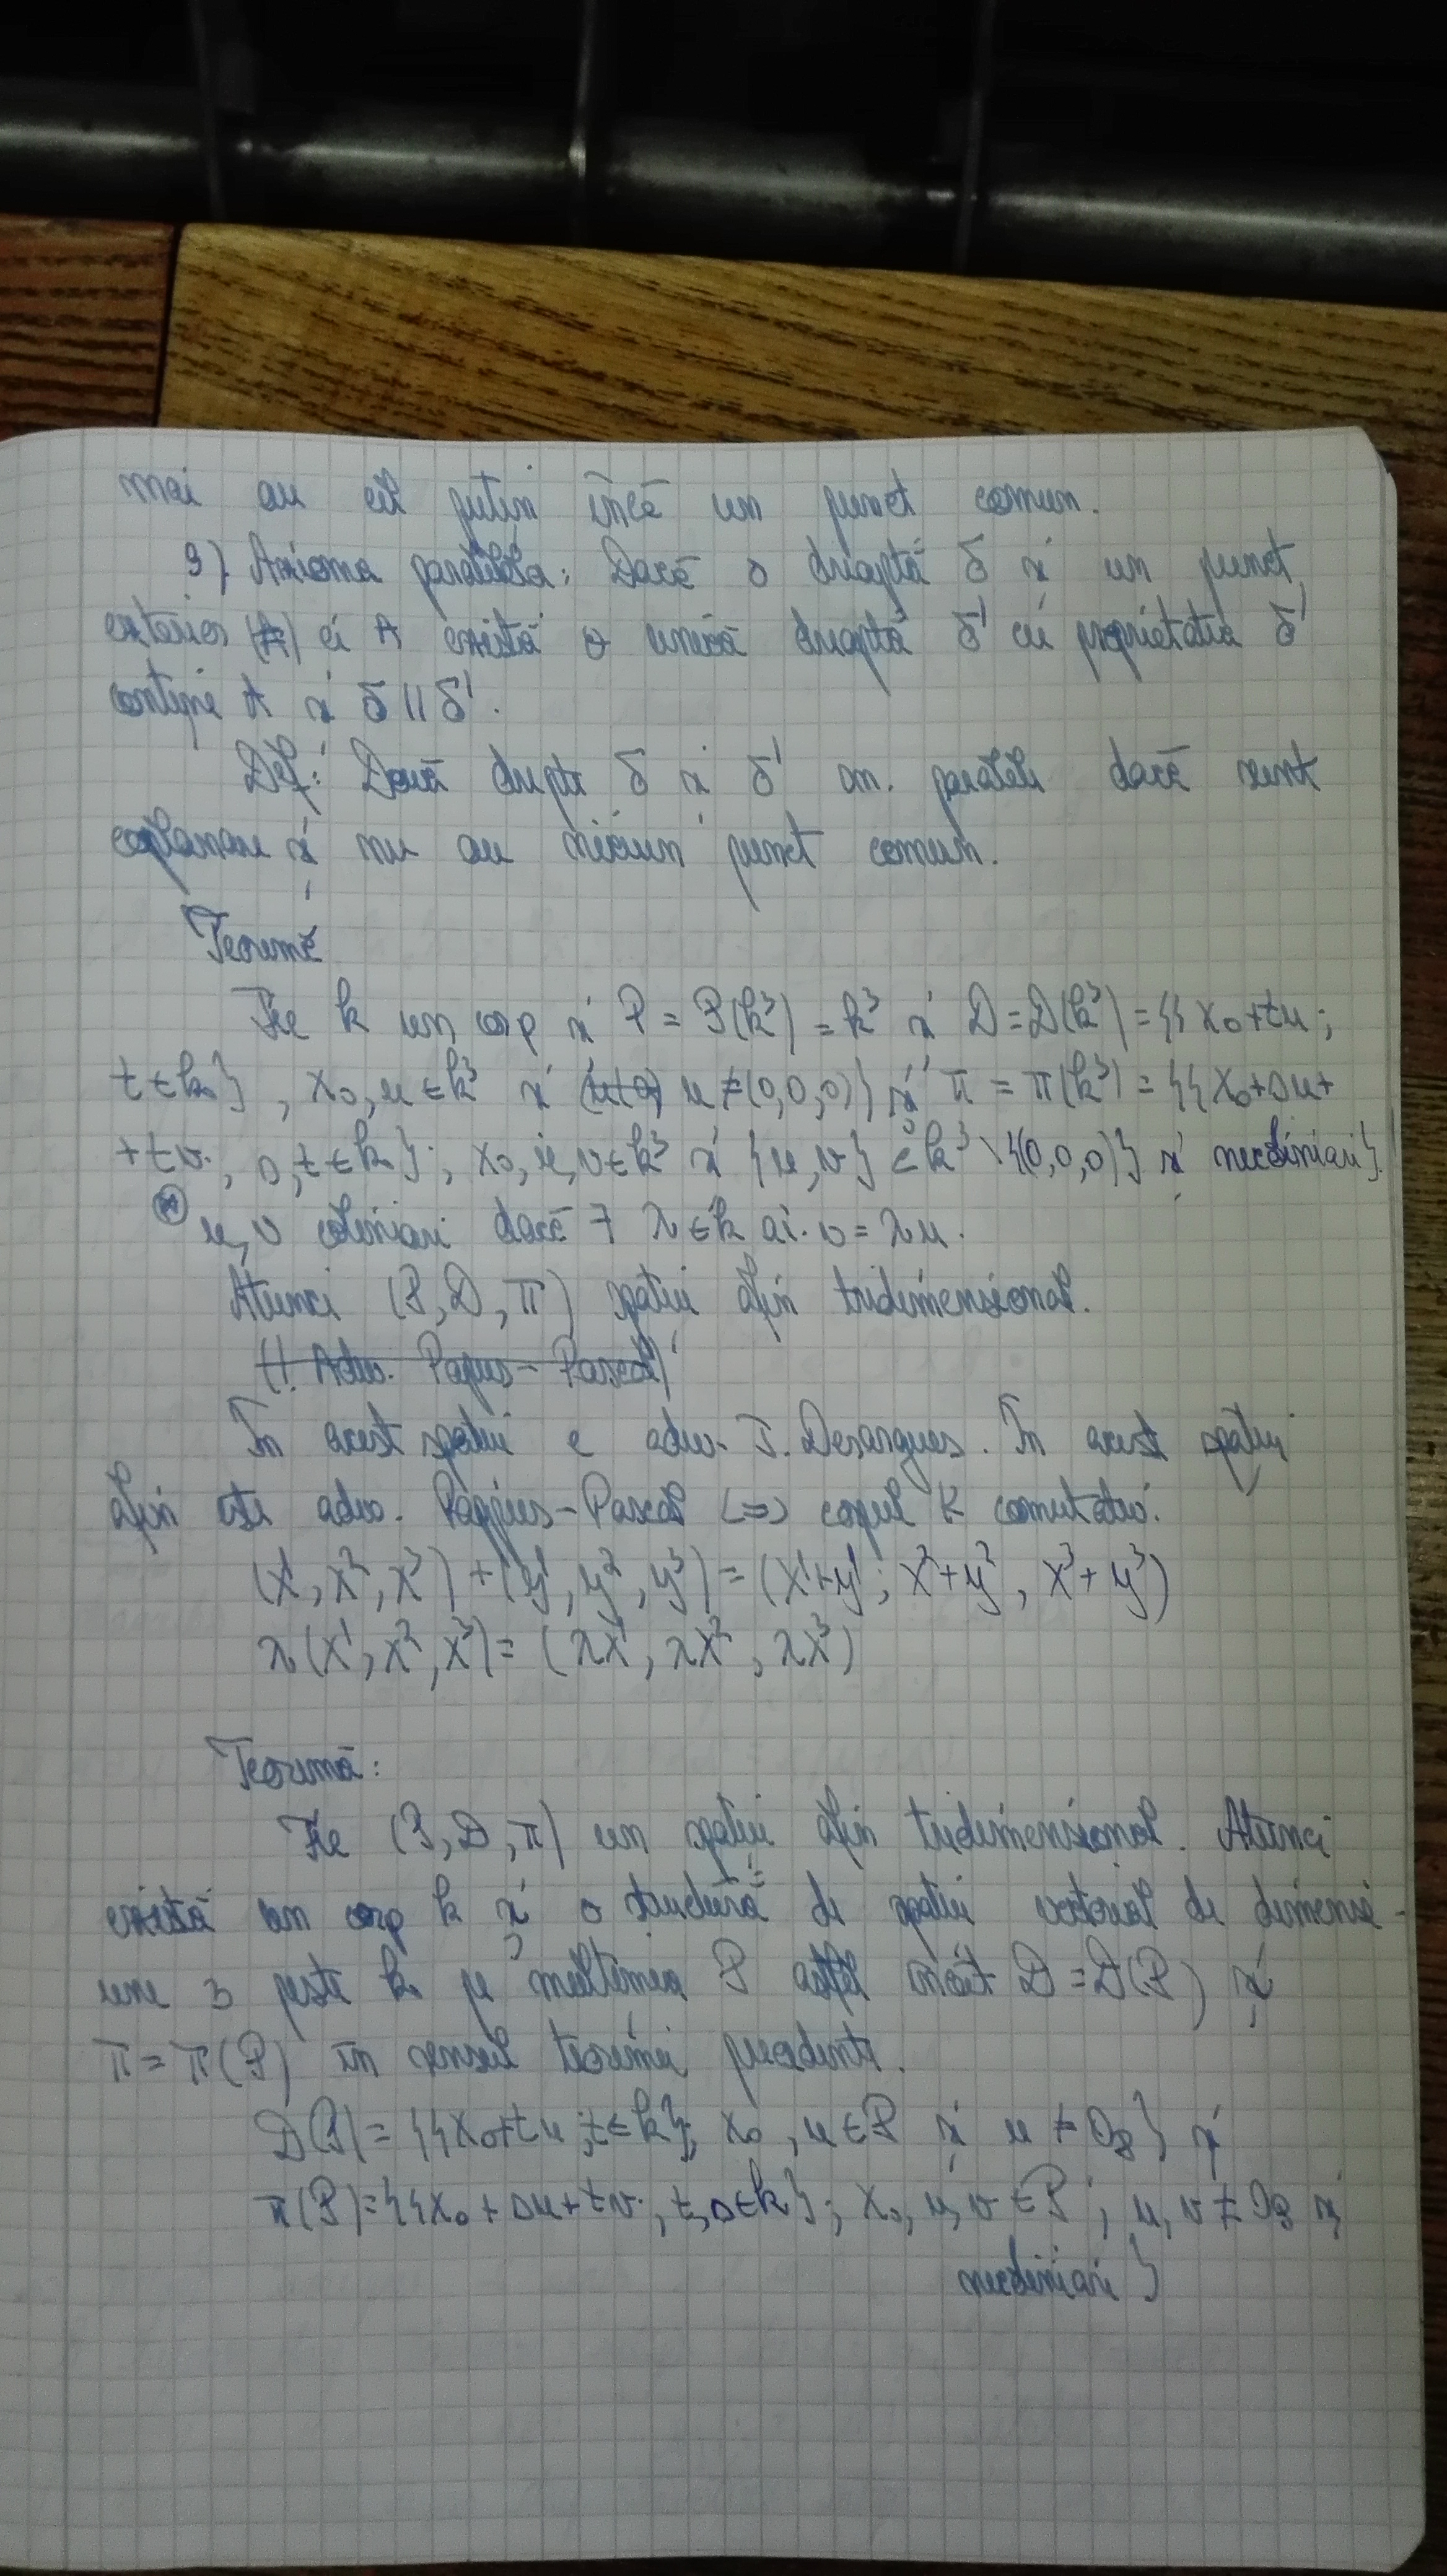 mai au cel puțin încă un punct comun.
9) Axioma paralelelor: Dacă o dreaptă δ și un punct
exterior ei A există o unică dreaptă δ' cu proprietatea δ'
conține A și δ || δ'.
Def: Două drepte δ și δ' sn. paralele dacă sunt
coplanare și nu au niciun punct comun.
Teoremă
Fie k un corp și P = P(k³) = k³ și D = D(k³) = {{x₀+tu;
t∈k}, x₀, u ∈ k³ și u ≠ (0,0,0)} și π = π(k³) = {{x₀+su+
+tv; s,t ∈ k}; x₀, u, v ∈ k³ și {u, v} ⊂ k³ \ {(0,0,0)} și necoliniari}.
u, v coliniari dacă ∃ λ ∈ k aî. v = λu.
Atunci (P, D, π) spațiu afin tridimensional.
(! Adev. Papus - Pascal)
În acest spațiu e adev. T. Desargues. În acest spațiu
afin este adev. Pappus - Pascal <=> corpul K comutativ.
(x¹, x², x³) + (y¹, y², y³) = (x¹+y¹, x²+y², x³+y³)
λ(x¹, x², x³) = (λx¹, λx², λx³)
Teoremă:
Fie (P, D, π) un spațiu afin tridimensional. Atunci
există un corp k și o structură de spațiu vectorial de dimensi-
une 3 peste k pe mulțimea P astfel încât D = D(P) și
π = π(P) în sensul teoremei precedente.
D(P) = {{x₀+tu; t∈k}; x₀, u ∈ P și u ≠ 0_P} și
π(P) = {{x₀ + su + tv; t, s ∈ k}; x₀, u, v ∈ P; u, v ≠ 0_P și
necoliniari}